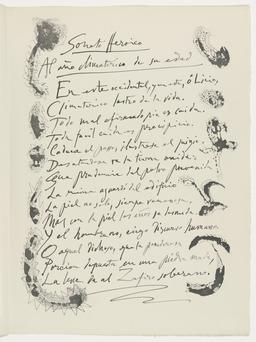 Soneto Heroico
Al año climaterico de su edad
En este occidental, en este, ó Licio,
Climaterico lustro de tu vida,
Todo mal afirmado pie es caida,
Toda facil caida es precipicio.
Caduca el paso, ilustrese el juicio.
Desatandose va la tierra unida;
Que prudencia del polvo prevenida
La ruina aguardó del edificio?
La piel no solo, sierpe venenosa,
Mas con la piel los años se desnuda,
Y el hombre no, ciego discurso humano!
O aquel dichoso, que la ponderosa
Porcion depuesta en una piedra muda,
La leve da al Zafiro soberano.